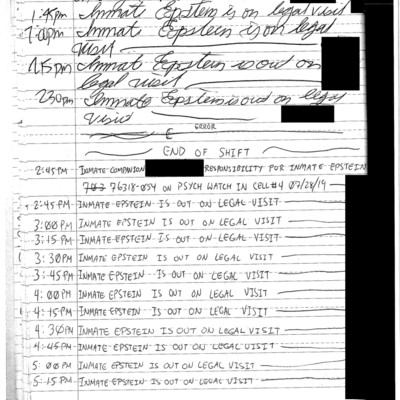 1:45pm Inmate Epstein is on legal visit
2:00pm Inmate Epstein is on legal
visit
2:15pm Inmate Epstein is out on
legal visit
2:30pm Inmate Epstein is out on legal
visit
E ERROR
END OF SHIFT
2:45PM INMATE COMPANION RESPONSIBILITY FOR INMATE EPSTEIN
703 76318-054 ON PSYCH WATCH IN CELL #4 07/28/19
2:45PM INMATE EPSTEIN IS OUT ON LEGAL VISIT
3:00PM INMATE EPSTEIN IS OUT ON LEGAL VISIT
3:15PM INMATE EPSTEIN IS OUT ON LEGAL VISIT
3:30PM INMATE EPSTEIN IS OUT ON LEGAL VISIT
3:45PM INMATE EPSTEIN IS OUT ON LEGAL VISIT
4:00PM INMATE EPSTEIN IS OUT ON LEGAL VISIT
4:15PM INMATE EPSTEIN IS OUT ON LEGAL VISIT
4:30PM INMATE EPSTEIN IS OUT ON LEGAL VISIT
4:45PM INMATE EPSTEIN IS OUT ON LEGAL VISIT
5:00PM INMATE EPSTEIN IS OUT ON LEGAL VISIT
5:15PM INMATE EPSTEIN IS OUT ON LEGAL VISIT